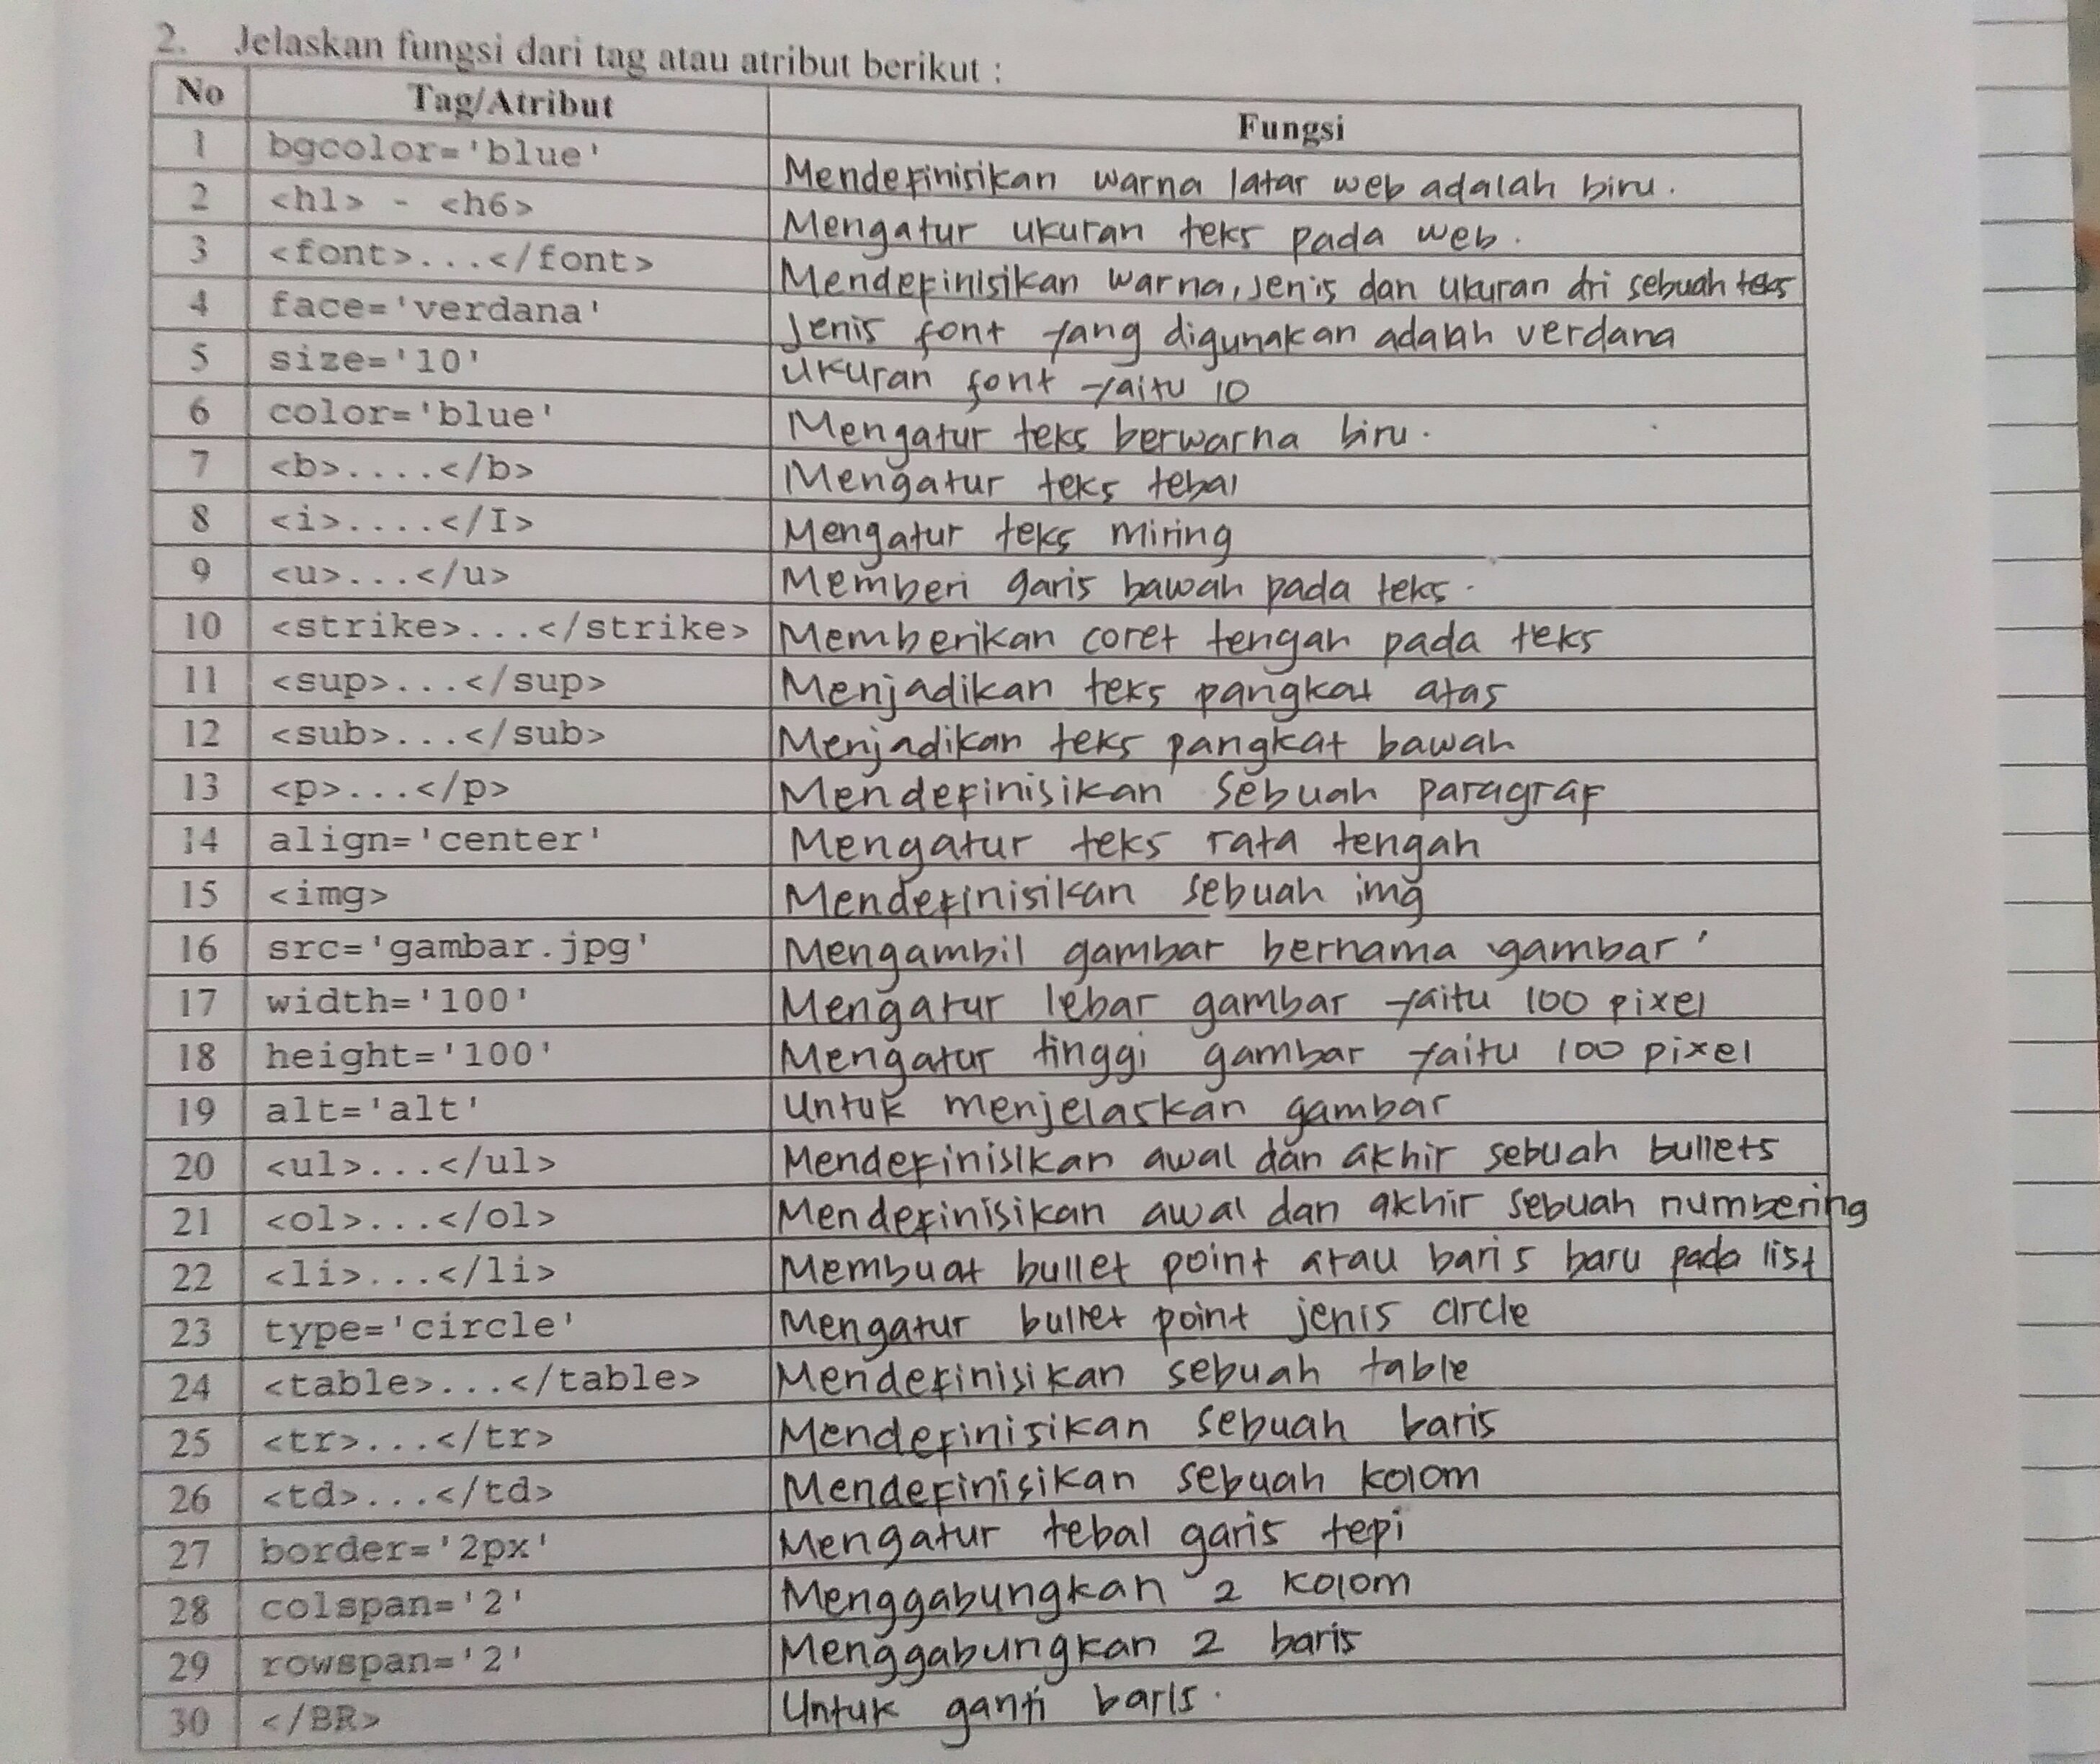 2. Jelaskan fungsi dari tag atau atribut berikut :
No Tag/Atribut Fungsi
1 bgcolor='blue' Mendefinisikan warna latar web adalah biru.
2 <h1> - <h6> Mengatur ukuran teks pada web.
3 <font>...</font> Mendefinisikan warna, jenis dan ukuran dri sebuah teks
4 face='verdana' Jenis font yang digunakan adalah verdana
5 size='10' Ukuran font yaitu 10
6 color='blue' Mengatur teks berwarna biru.
7 <b>....</b> Mengatur teks tebal
8 <i>....</I> Mengatur teks miring
9 <u>...</u> Memberi garis bawah pada teks.
10 <strike>...</strike> Memberikan coret tengah pada teks
11 <sup>...</sup> Menjadikan teks pangkat atas
12 <sub>...</sub> Menjadikan teks pangkat bawah
13 <p>...</p> Mendefinisikan sebuah paragraf
14 align='center' Mengatur teks rata tengah
15 <img> Mendefinisikan sebuah img
16 src='gambar.jpg' Mengambil gambar bernama 'gambar'
17 width='100' Mengatur lebar gambar yaitu 100 pixel
18 height='100' Mengatur tinggi gambar yaitu 100 pixel
19 alt='alt' Untuk menjelaskan gambar
20 <ul>...</ul> Mendefinisikan awal dan akhir sebuah bullets
21 <ol>...</ol> Mendefinisikan awal dan akhir sebuah numbering
22 <li>...</li> Membuat bullet point atau baris baru pada list
23 type='circle' Mengatur bullet point jenis circle
24 <table>...</table> Mendefinisikan sebuah table
25 <tr>...</tr> Mendefinisikan sebuah baris
26 <td>...</td> Mendefinisikan sebuah kolom
27 border='2px' Mengatur tebal garis tepi
28 colspan='2' Menggabungkan 2 kolom
29 rowspan='2' Menggabungkan 2 baris
30 </BR> Untuk ganti baris.